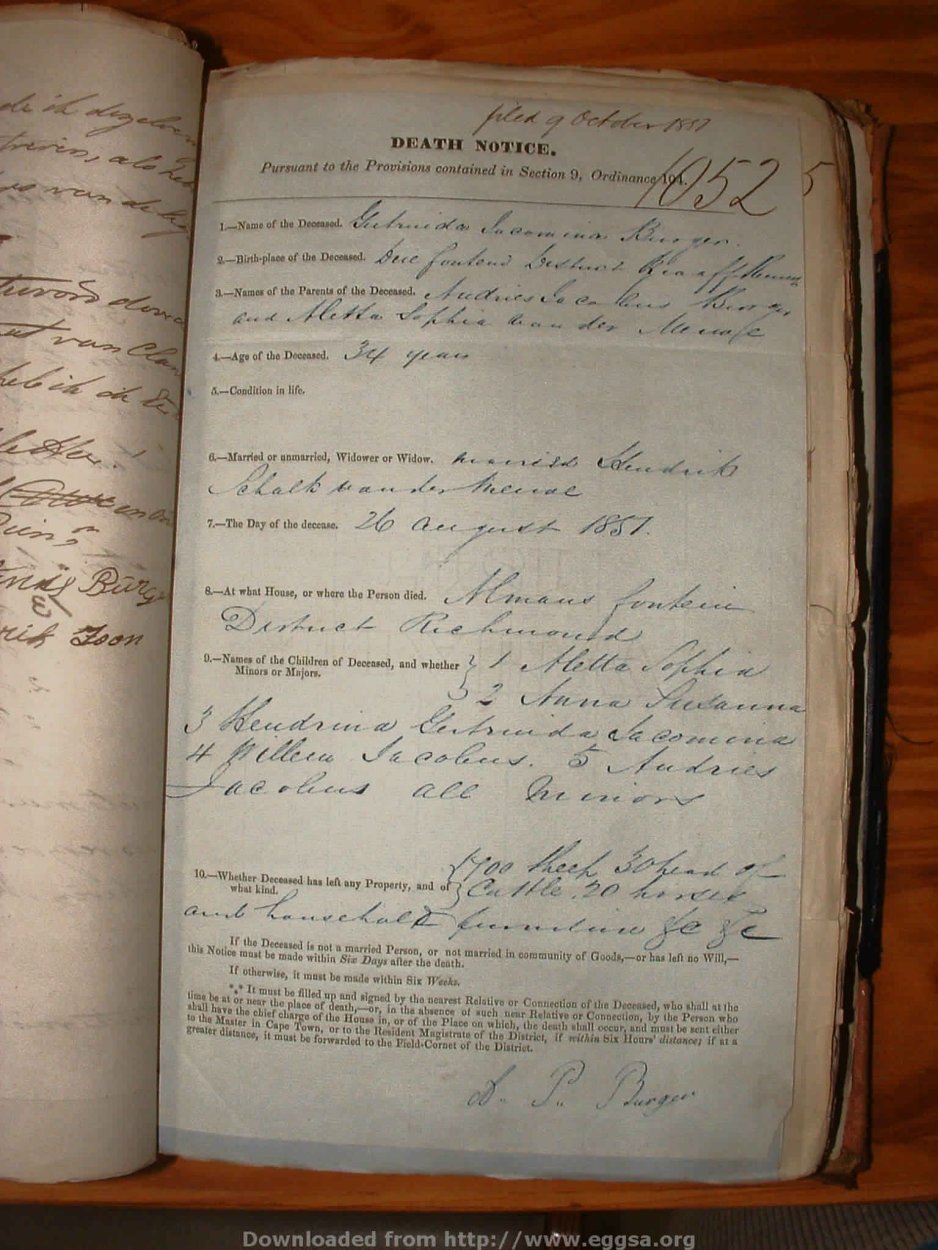 filed 9 October 1857
DEATH NOTICE.
Pursuant to the Provisions contained in Section 9, Ordinance 104.
10525
1.—Name of the Deceased. Gertruida Jacomina Burger.
2.—Birth-place of the Deceased. fontein District
3.—Names of the Parents of the Deceased. Andries Jacobus Burger
and Aletta Sophia van der Merwe
4.—Age of the Deceased. 34 years
5.—Condition in life.
6.—Married or unmarried, Widower or Widow. married Hendrik
Schalk van der Merwe
7.—The Day of the decease. 26 august 1857.
8.—At what House, or where the Person died. fontein
District Richmond
9.—Names of the Children of Deceased, and whether } 1 Aletta Sophia
Minors or Majors. 2 Anna Susanna
3 Hendrina Gertruida Jacomina
4 Willem Jacobus. 5 Andries
Jacobus all Minors
10.—Whether Deceased has left any Property, and of } 700 Sheep 30 head of
what kind. Cattle. 20 horses
and household furniture &c &c
If the Deceased is not a married Person, or not married in community of Goods,—or has left no Will,—
this Notice must be made within Six Days after the death.
If otherwise, it must be made within Six Weeks.
*** It must be filled up and signed by the nearest Relative or Connection of the Deceased, who shall at the
time be at or near the place of death,—or, in the absence of such near Relative or Connection, by the Person who
shall have the chief charge of the House in, or of the Place on which, the death shall occur, and must be sent either
to the Master in Cape Town, or to the Resident Magistrate of the District, if within Six Hours' distance; if at a
greater distance, it must be forwarded to the Field-Cornet of the District.
P. Burger
Downloaded from http://www.eggsa.org